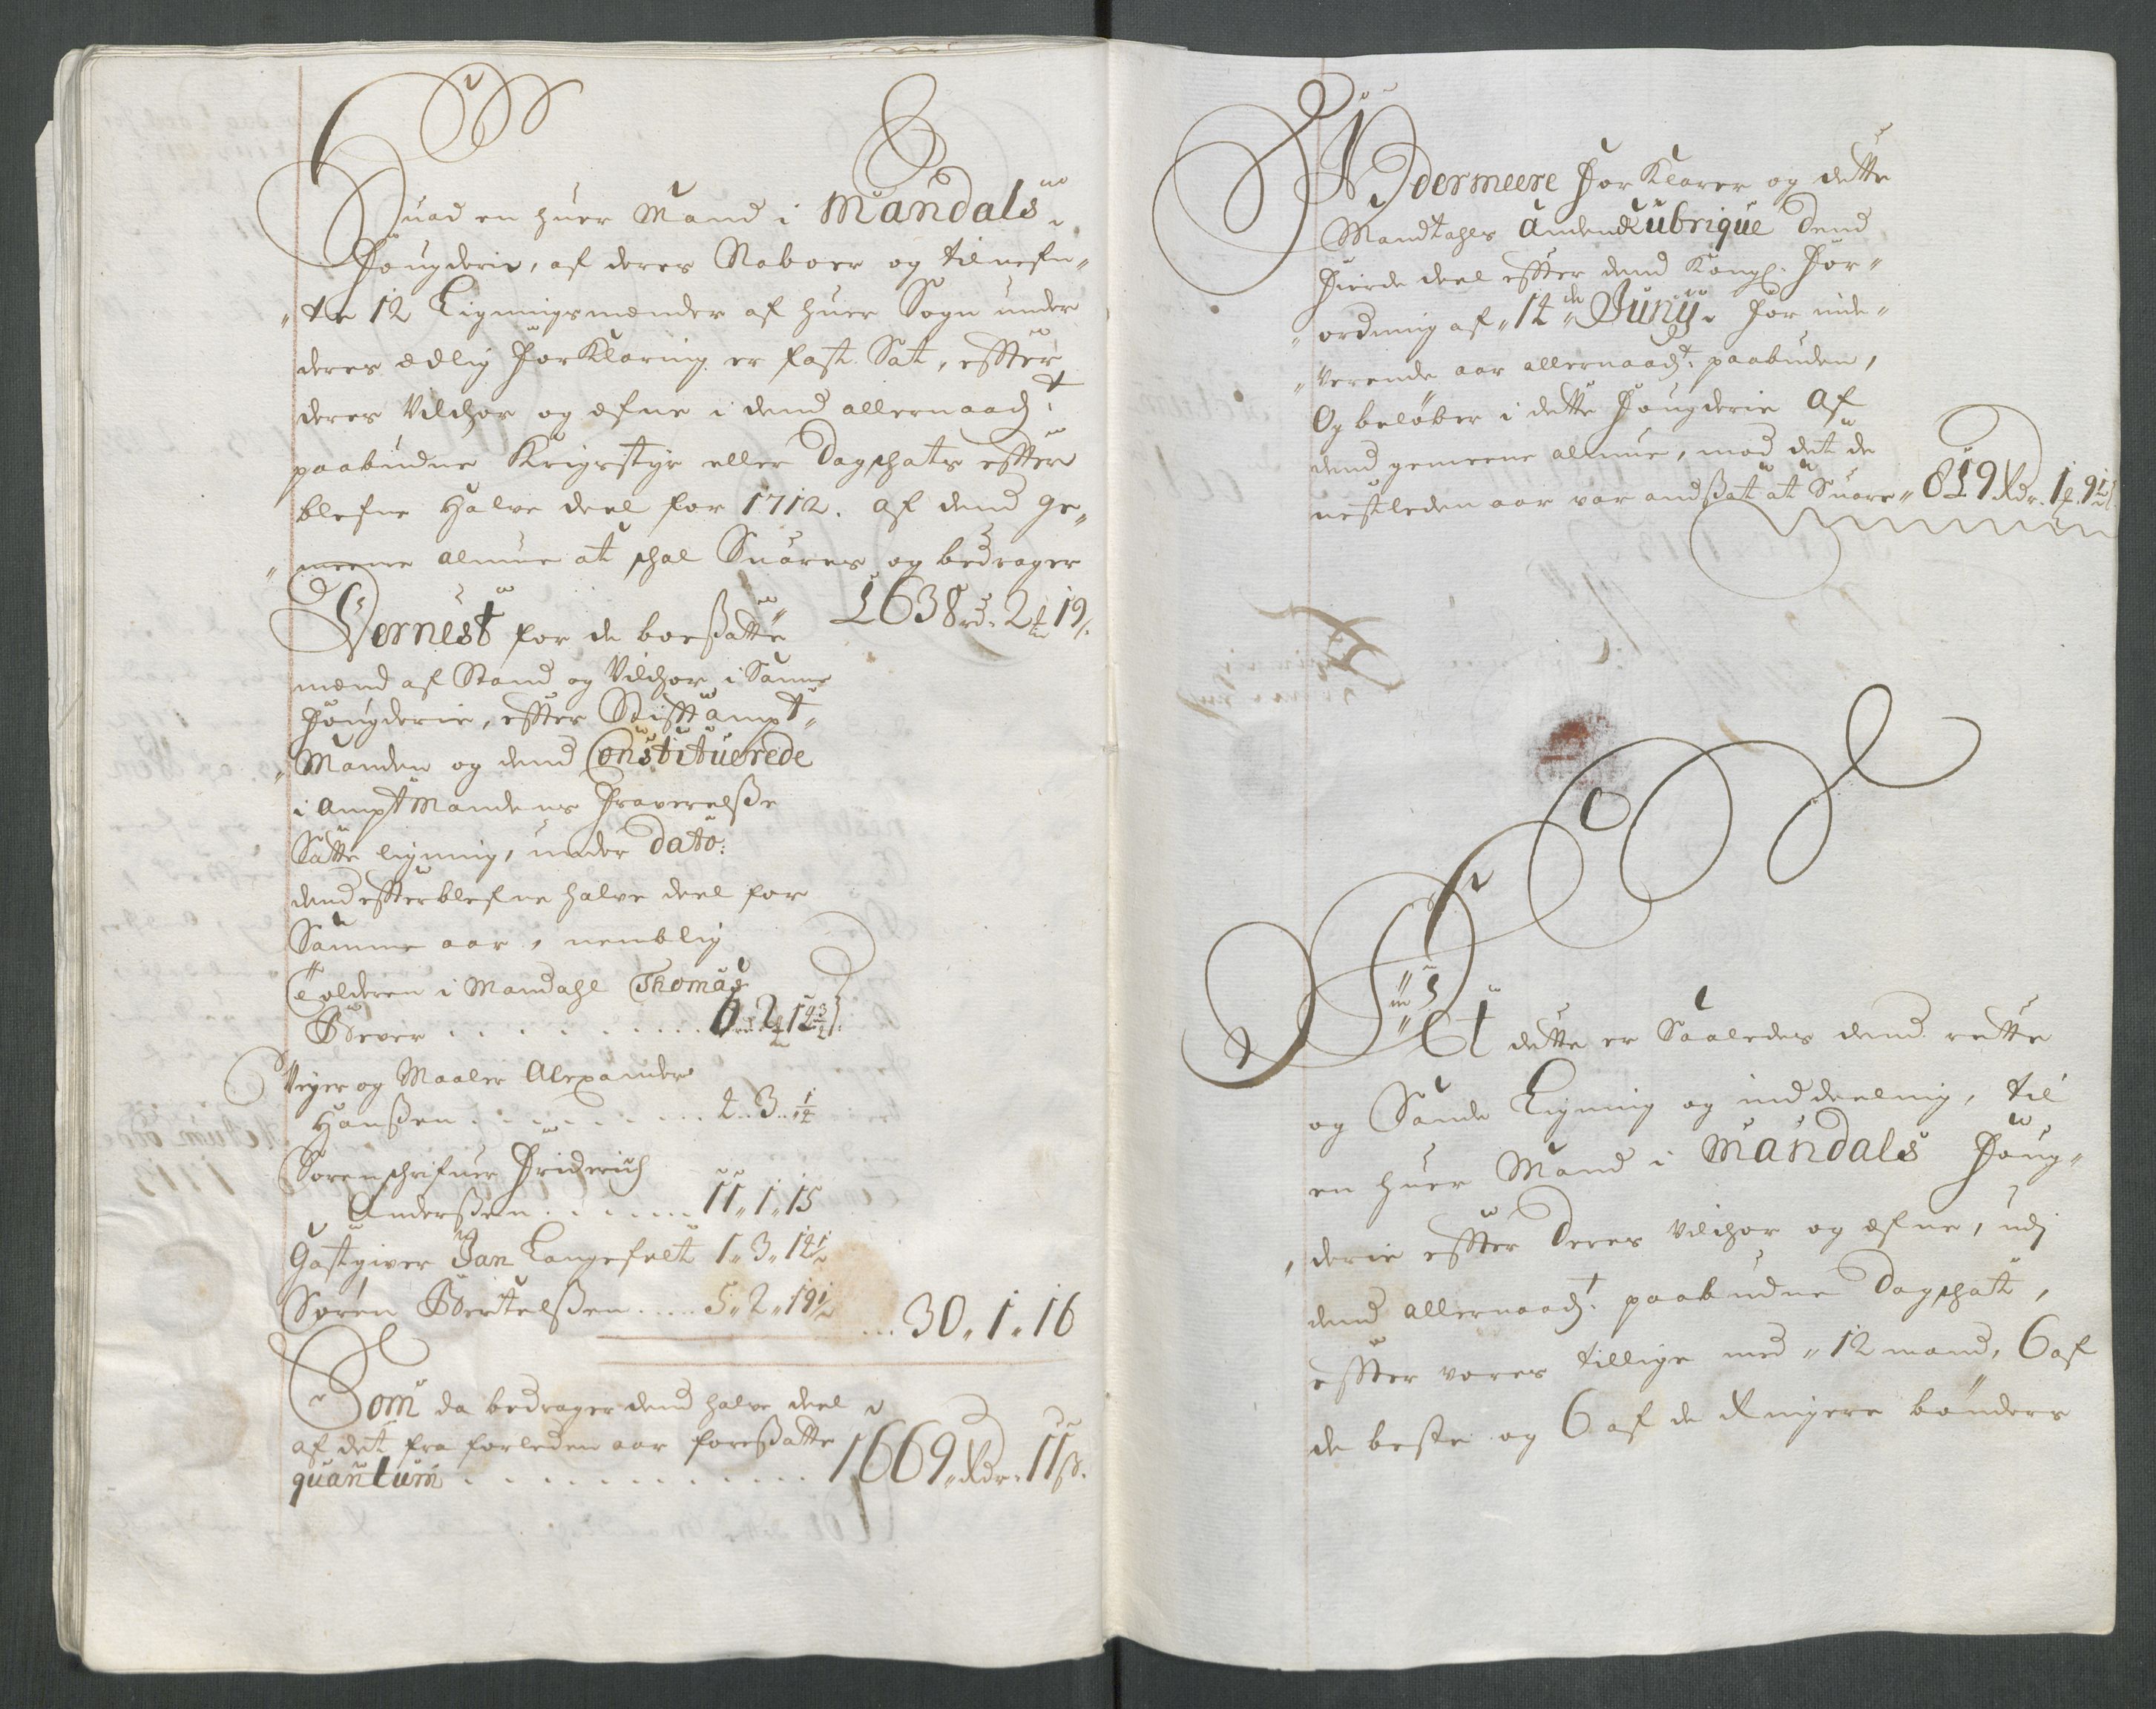 Huad en huer Mand i Mandals
Fougderie, af deres Naboer og tilnefn„
„te 12 Ligningsmænder af huer Sogn under
deres Edlig Forklaring er fast Sat, effter
deres Vilchor og Efne i dend allernaad:t
paabudne Krigsstyr eller Dagschatz effter
blefne Halve deel for 1712. af dend ge„
„meene almue at schal Suares og bedrager
1638 rd. 2 19
Dernest for de boesatte
mænd af Stand og Vilchor i Samme
Fougderie, effter Stifftampt„
„Manden og dend Constituerede
i Amptmandens Fraverelsse
Satte ligning, under Dato:
dend effterblefne halve deel for
Samme aar, nemblig
Tolderen i Mandahl Thomas
Bever . . . . . . . . . . 6 2 14
Veyer og Maaler Alexander
Hanssen . . . . . . . . . . 4 . . 3 . .
Sorenschrifuer Friderich
Anderssen . . . . . . . 11 „ 1 „ 15
Gastgiver Jan Langefelt 1 „ 3 „ 14½
Søren Bertelssen . . . . . 5 „ 2 „ 19½
. . . 30 „ 1 „ 16
Som da bedrager dend halve deel
af det fra forleden aar foressatte
quantum . . . . . . . . . . . . . 1669 „ Rdr. 11 ß.
Ydermeere Forklarer og dette
Mandtahls anden Rubrique dend
Fierde deel effter dend Kongl. For„
„ordning af „ 14de Junij „ for inde„
„Verende aar allernaad:t paabuden,
Og beløber i dette Fougderie Af
dend gemeene almue, mod det de
nestleden aar var andssat at Suare „ 819 Rdr. 1 9½
At dette er Saaledes dend rette
og Sande Ligning og inddeeling, til
en huer Mand i Mandals Foug„
„derie effter deres Vilchor og Efne, udj
dend allernaad:t paabudne Dagschat,
effter vores tillige med „ 12 mænd, 6 af
de beste og 6 af de Ringere bønders